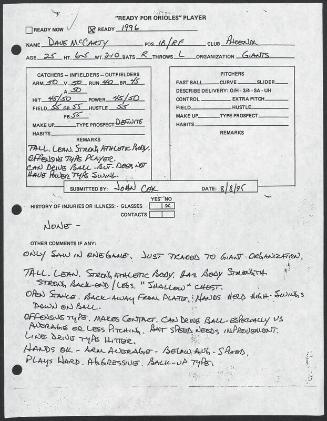 "READY FOR ORIOLES" PLAYER
READY NOW READY 1996
NAME DAVE McCARTY POS 1B/RF CLUB PHOENIX
AGE 25 HT 6-5 WT 210 BATS R THROWS L ORGANIZATION GIANTS
CATCHERS - INFIELDERS - OUTFIELDERS
ARM 50 V. 50 RUN 40 BR. 45
A. 50
HIT 45/50 POWER 45/50
FIELD 55 HUSTLE 55
MAKE UP TYPE PROSPECT DEFINITE
HABITS
REMARKS
TALL. LEAN. STRONG, ATHLETIC BODY.
OFFENSIVE TYPE PLAYER.
CAN DRIVE BALL - BUT DOES NOT
HAVE POWER TYPE SWING.
PITCHERS
FAST BALL CURVE SLIDER
DESCRIBE DELIVERY: O/H - 3/4 - SA - UH
CONTROL EXTRA PITCH
FIELD HUSTLE
MAKE UP TYPE PROSPECT
HABITS
REMARKS
SUBMITTED BY: JOHN COX DATE: 8/8/95
YES NO
HISTORY OF INJURIES OR ILLNESS: - GLASSES
CONTACTS
NONE -
OTHER COMMENTS IF ANY:
ONLY SAW IN ONE GAME. JUST TRADED TO GIANT ORGANIZATION.
TALL. LEAN. STRONG, ATHLETIC BODY. HAS BODY STRENGTH.
STRONG BACK-END / LEGS. "SHALLOW" CHEST.
OPEN STANCE. BACK-AWAY FROM PLATE. HANDS HELD HIGH - SWINGS
DOWN ON BALL.
OFFENSIVE TYPE. MAKES CONTACT. CAN DRIVE BALL - ESPECIALLY VS
AVERAGE OR LESS PITCHING. BAT SPEED NEEDS IMPROVEMENT.
LINE DRIVE TYPE HITTER.
HANDS OK - ARM AVERAGE - BELOW AVG. SPEED.
PLAYS HARD. AGGRESSIVE. BACK-UP TYPE.